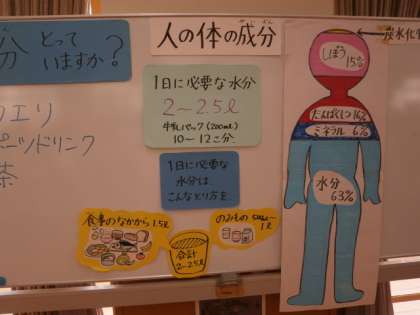 分 とって
いますか?
人の体の成分
炭水化
1日に必要な水分
2〜2.5ℓ
牛乳パック(200mL)
10〜12こ分
1日に必要な
水分は
こんなとり方を
食事のなかから1.5ℓ
合計
2〜2.5ℓ
のみもの 500mL〜
1ℓ
クエリ
ポーツドリンク
茶
しぼう
15%
たんぱくしつ 16%
ミネラル 6%
水分
63%